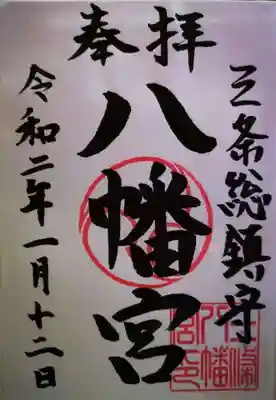 奉拝
三条総鎮守
八幡宮
令和二年一月十二日
三條八幡宮印